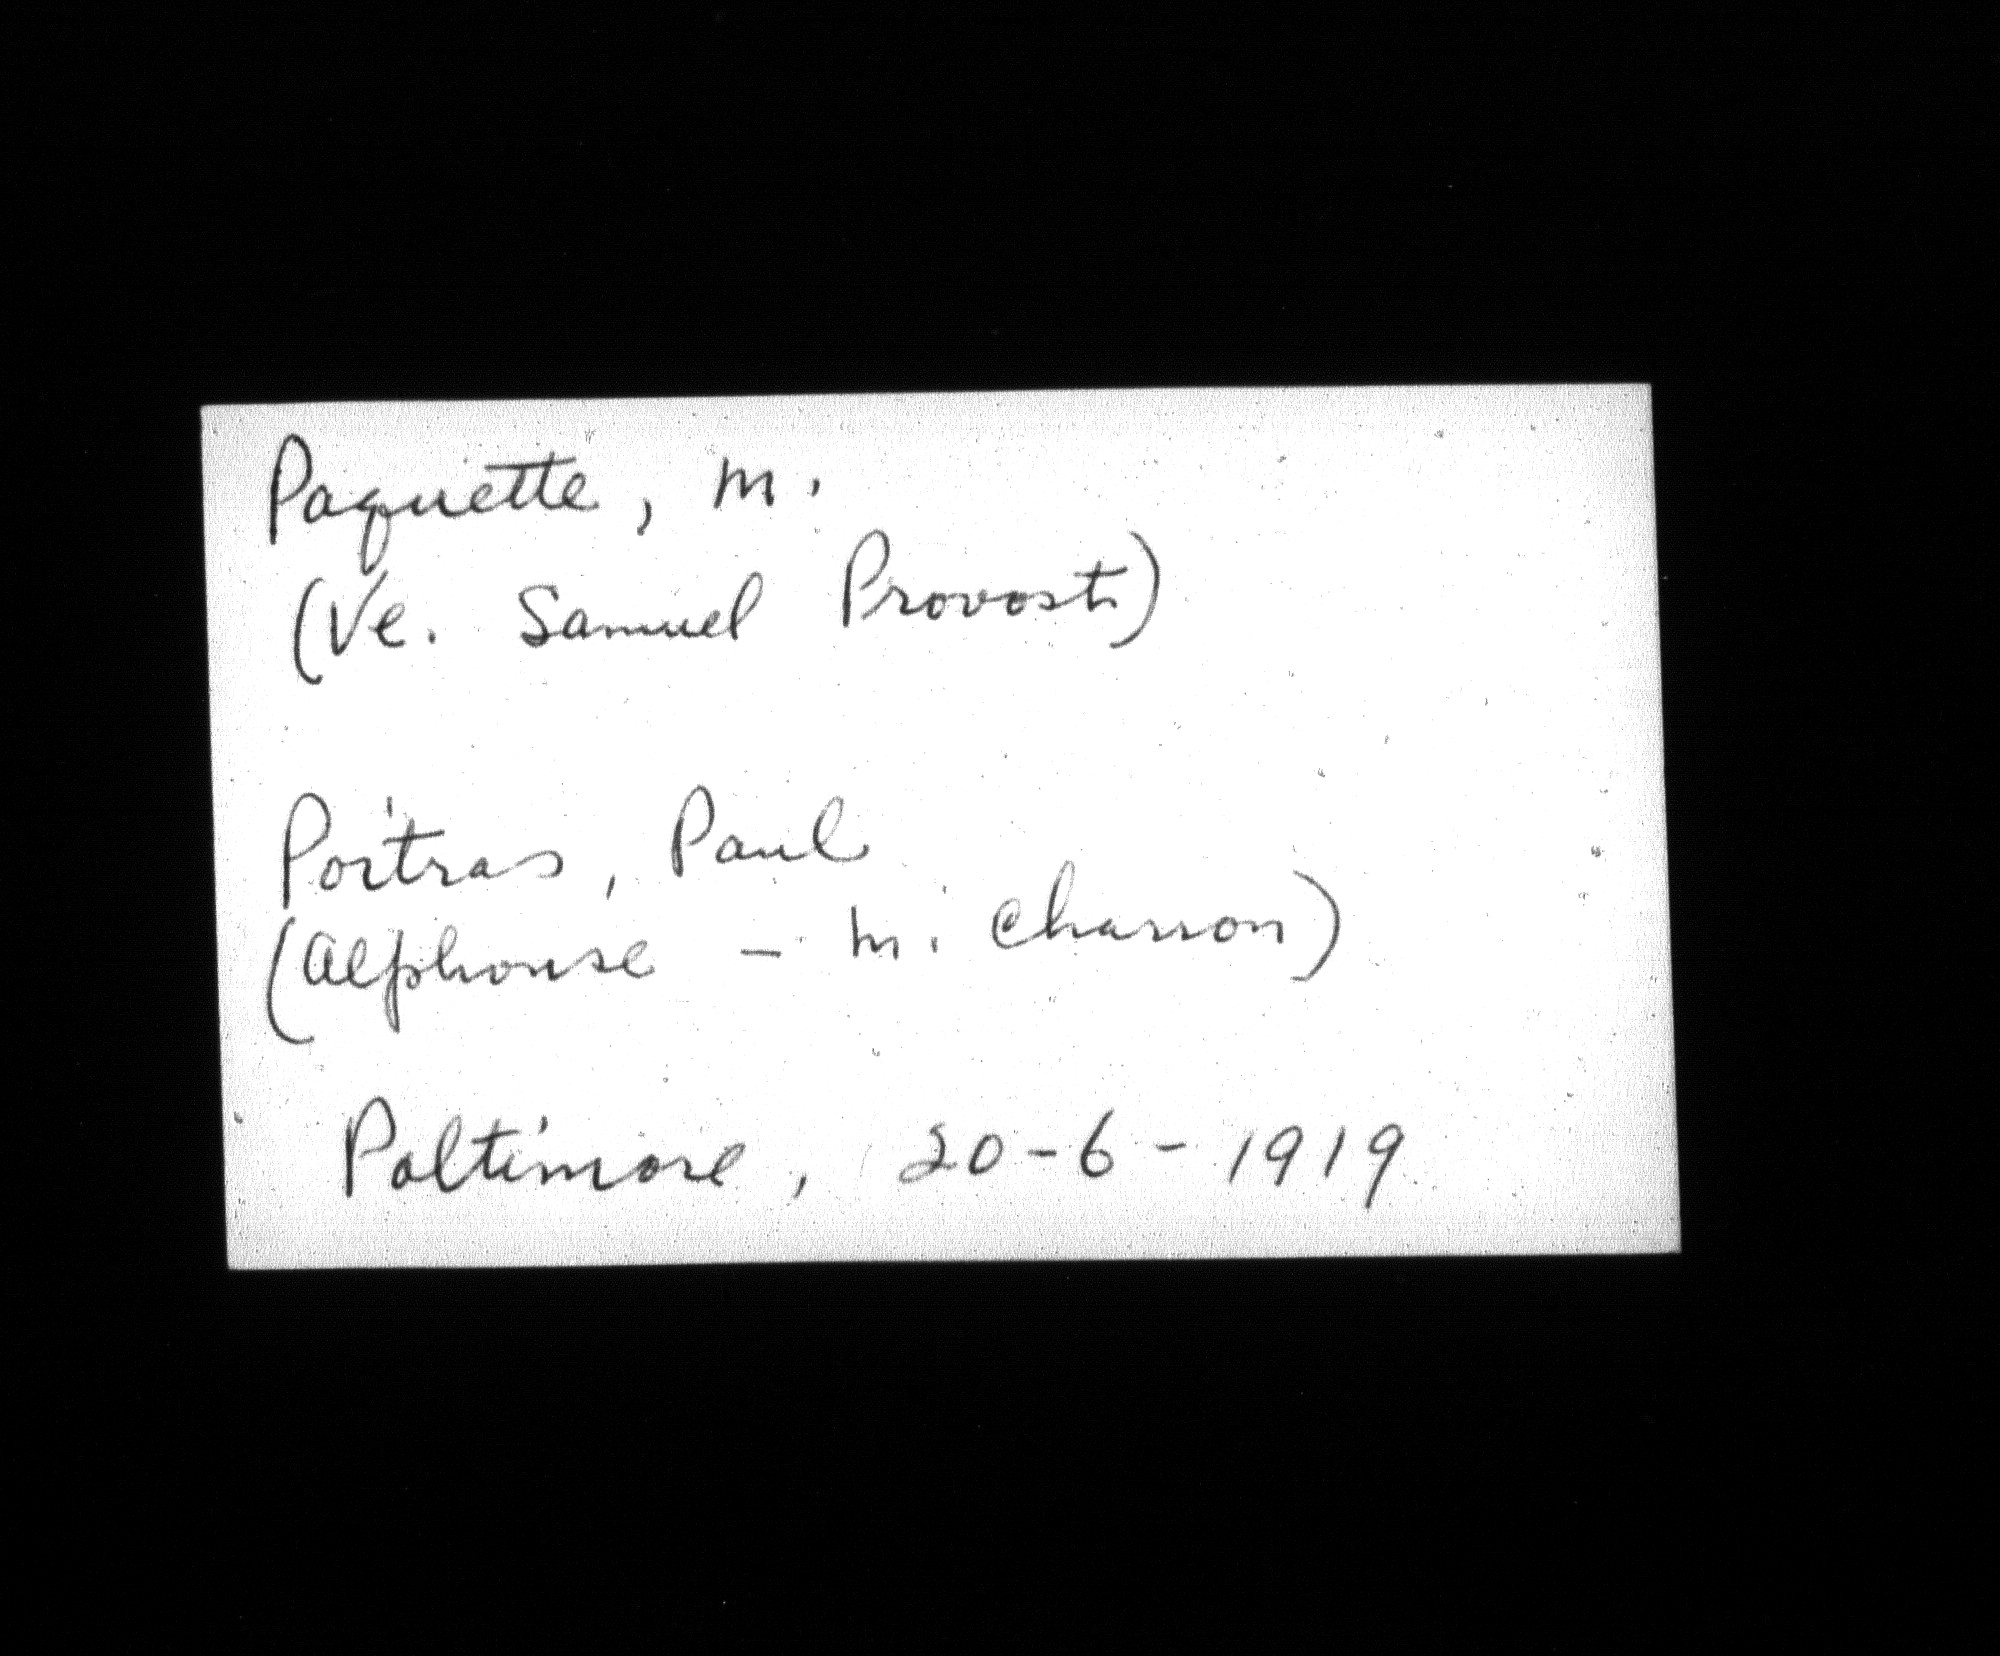 Paquette, M.
(Ve. Samuel Provost)
Poitras, Paul
(Alphonse - M. Charron)
Poltimore, 20-6-1919